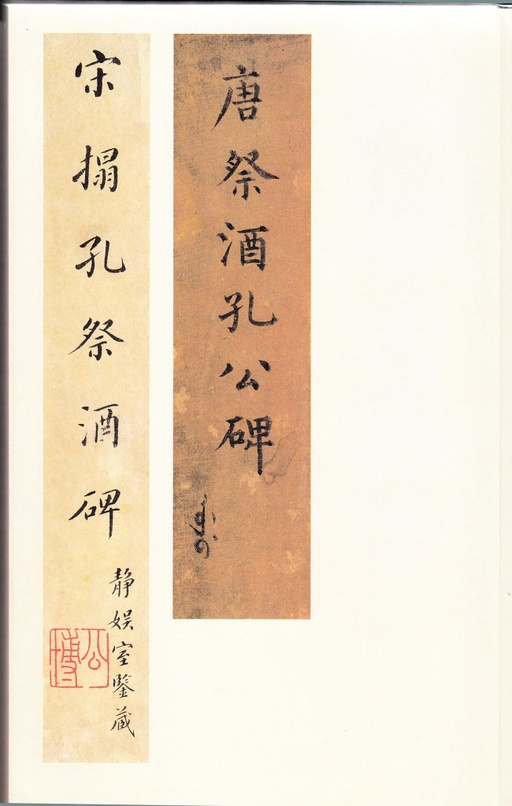 唐祭酒孔公碑
宋搨孔祭酒碑
靜娱室鑒藏
公博